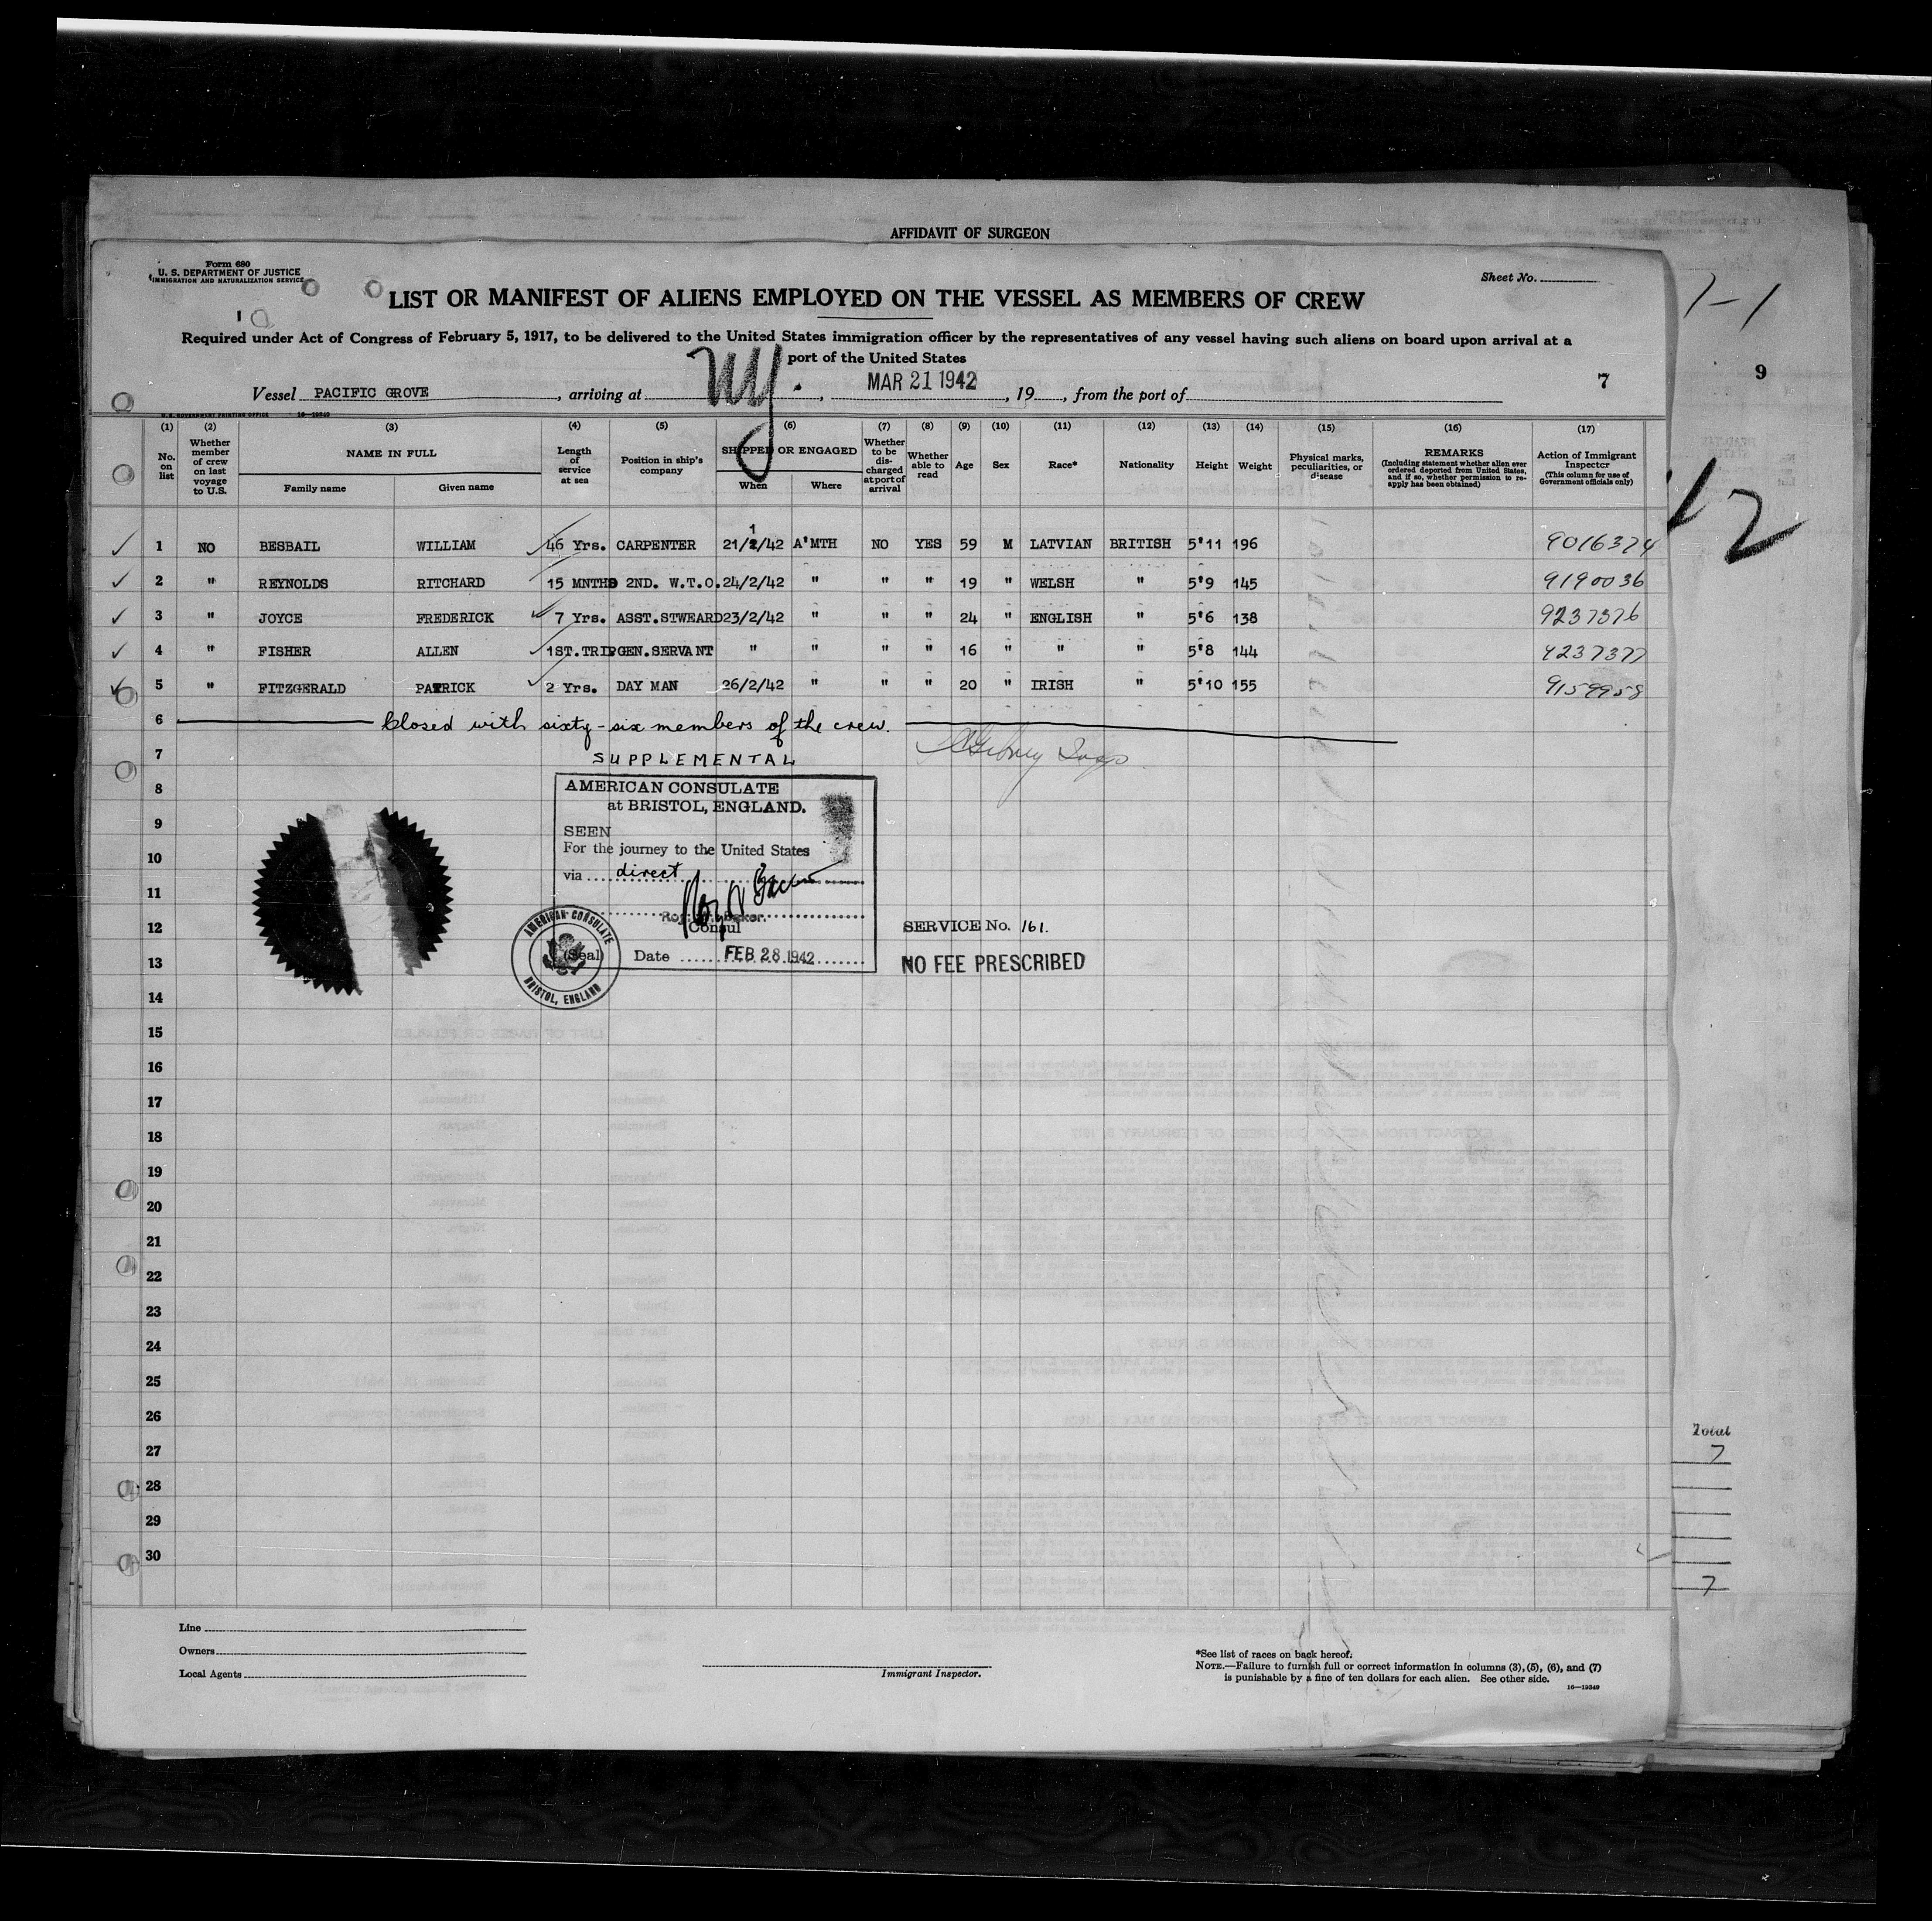 AFFIDAVIT OF SURGEON
Form 680
U. S. DEPARTMENT OF JUSTICE
IMMIGRATION AND NATURALIZATION SERVICE
Sheet No.
LIST OR MANIFEST OF ALIENS EMPLOYED ON THE VESSEL AS MEMBERS OF CREW
1-1
Required under Act of Congress of February 5, 1917, to be delivered to the United States immigration officer by the representatives of any vessel having such aliens on board upon arrival at a
port of the United States
Vessel PACIFIC GROVE, arriving at NY., MAR 21 1942, 19, from the port of
7
9
U.S. GOVERNMENT PRINTING OFFICE 16—19349
(1) (2) (3) (4) (5) (6) (7) (8) (9) (10) (11) (12) (13) (14) (15) (16) (17)
No. on list
Whether member of crew on last voyage to U.S.
NAME IN FULL
Family name
Given name
Length of service at sea
Position in ship's company
SHIPPED OR ENGAGED
When
Where
Whether to be discharged at port of arrival
Whether able to read
Age
Sex
Race*
Nationality
Height
Weight
Physical marks, peculiarities, or disease
REMARKS
(Including statement whether alien ever ordered deported from United States, and if so, whether permission to re-apply has been obtained)
Action of Immigrant Inspector
(This column for use of Government officials only)
12
1 NO BESBAIL WILLIAM 46 Yrs. CARPENTER 21/1/42 A'MTH NO YES 59 M LATVIAN BRITISH 5'11 196 9016374
2 " REYNOLDS RITCHARD 15 MNTHS 2ND. W.T.O. 24/2/42 " " " 19 " WELSH " 5'9 145 9190036
3 " JOYCE FREDERICK 7 Yrs. ASST.STWEARD 23/2/42 " " " 24 " ENGLISH " 5'6 138 9237376
4 " FISHER ALLEN 1ST.TRIP GEN.SERVANT " " " " 16 " " " 5'8 144 9237377
5 " FITZGERALD PATRICK 2 Yrs. DAY MAN 26/2/42 " " " 20 " IRISH " 5'10 155 9159958
6 Closed with sixty-six members of the crew.
7 SUPPLEMENTAL
8
AMERICAN CONSULATE
at BRISTOL, ENGLAND.
9
SEEN
10
For the journey to the United States
11
via direct
12
Consul
SERVICE No. 161.
13
(Seal) Date FEB 28 1942
NO FEE PRESCRIBED
AMERICAN CONSULATE
BRISTOL, ENGLAND
14
15
16
17
18
19
20
21
22
23
24
25
26
27
28
29
30
Total
7
7
Line
Owners
Local Agents
Immigrant Inspector.
*See list of races on back hereof.
NOTE.—Failure to furnish full or correct information in columns (3), (5), (6), and (7)
is punishable by a fine of ten dollars for each alien. See other side.
16—19349